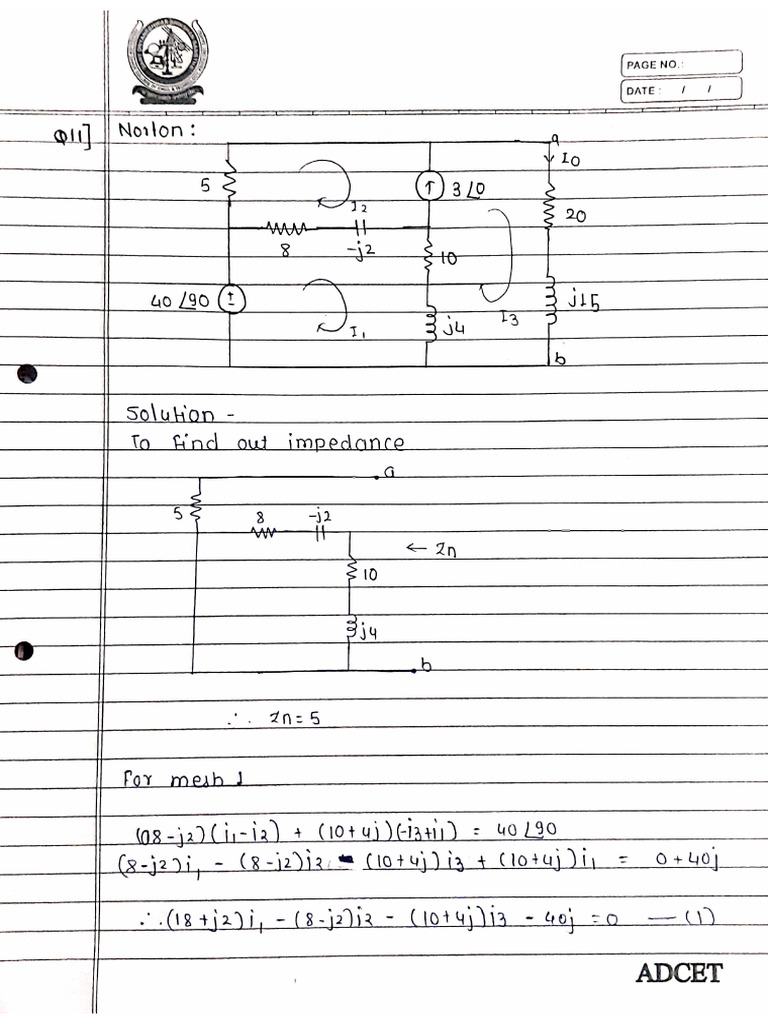 PAGE NO.:
DATE: / /
Q11] Norton:
a
I0
5
3∠0
I2
20
8
-j2
10
40∠90
±
I1
j4
I3
j15
b
Solution -
To find out impedance
a
5
8
-j2
← Zn
10
j4
b
∴ Zn = 5
For mesh 1
(08-j2)(i1-i2) + (10+4j)(-i3+i1) = 40∠90
(8-j2)i1 - (8-j2)i2 - (10+4j)i3 + (10+4j)i1 = 0+40j
∴ (18+j2)i1 - (8-j2)i2 - (10+4j)i3 - 40j = 0 — (1)
ADCET